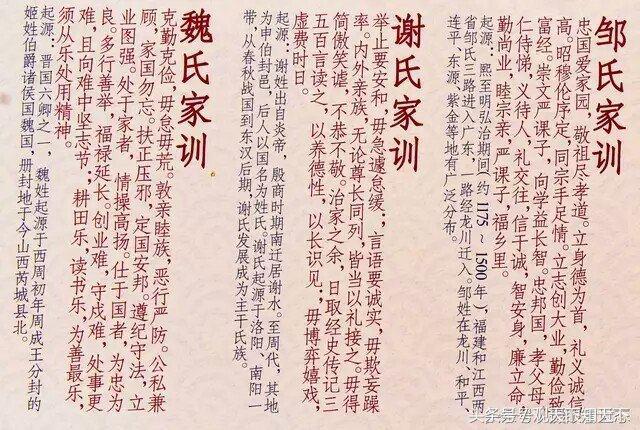 邹氏家训
忠国爱家园，敬祖尽孝道。立身德为首，礼义诚信
昭穆伦序定，同宗手足情。立志创大业，勤俭致
富经。崇文严课子，向学益长智。忠邦国，孝父母，
仁侍悌，义待人，礼交往，信于诚，智安身，廉立命，
勤尚业，睦宗亲，严课子，福乡里。
起源：熙至明弘治期间（约1175～1500年），福建和江西两
省邹氏三路进入广东，一路经龙川迁入。邹姓在龙川、和平、
连平、东源、紫金等地有广泛分布。
谢氏家训
举止要安和，毋急遽怠缓；言语要诚实，毋欺妄躁
率。内外亲族，无论尊长同列，皆当以礼接之。毋得
简傲笑谑，不恭不敬。治家之余，日取经史传记三
五百言读之，以养德性，以长识见；毋博弈嬉戏，
虚费时日。
起源：谢姓出自炎帝，殷商时期南迁居谢水。至周代，其地
为申伯封邑，后人以国名为姓氏。谢氏起源于洛阳、南阳一
带，从春秋战国到东汉后期，谢氏发展成为主干氏族。
魏氏家训
克勤克俭，毋怠毋荒。敦亲睦族，恶行严防。公私兼
顾，家国勿忘。扶正压邪，定国安邦。遵纪守法，立
业图强。处于家者，情操高扬。仕于国者，为忠为
良。多行善举，福禄延长。创业难，守成难，处事更
难，且向难中坚志节；耕田乐、读书乐，为善最乐，
须从乐处用精神。
起源：晋国六卿之一，魏姓起源于西周初年周成王分封的
姬姓伯爵诸侯国魏国，册封地于今山西芮城县北。
头条号